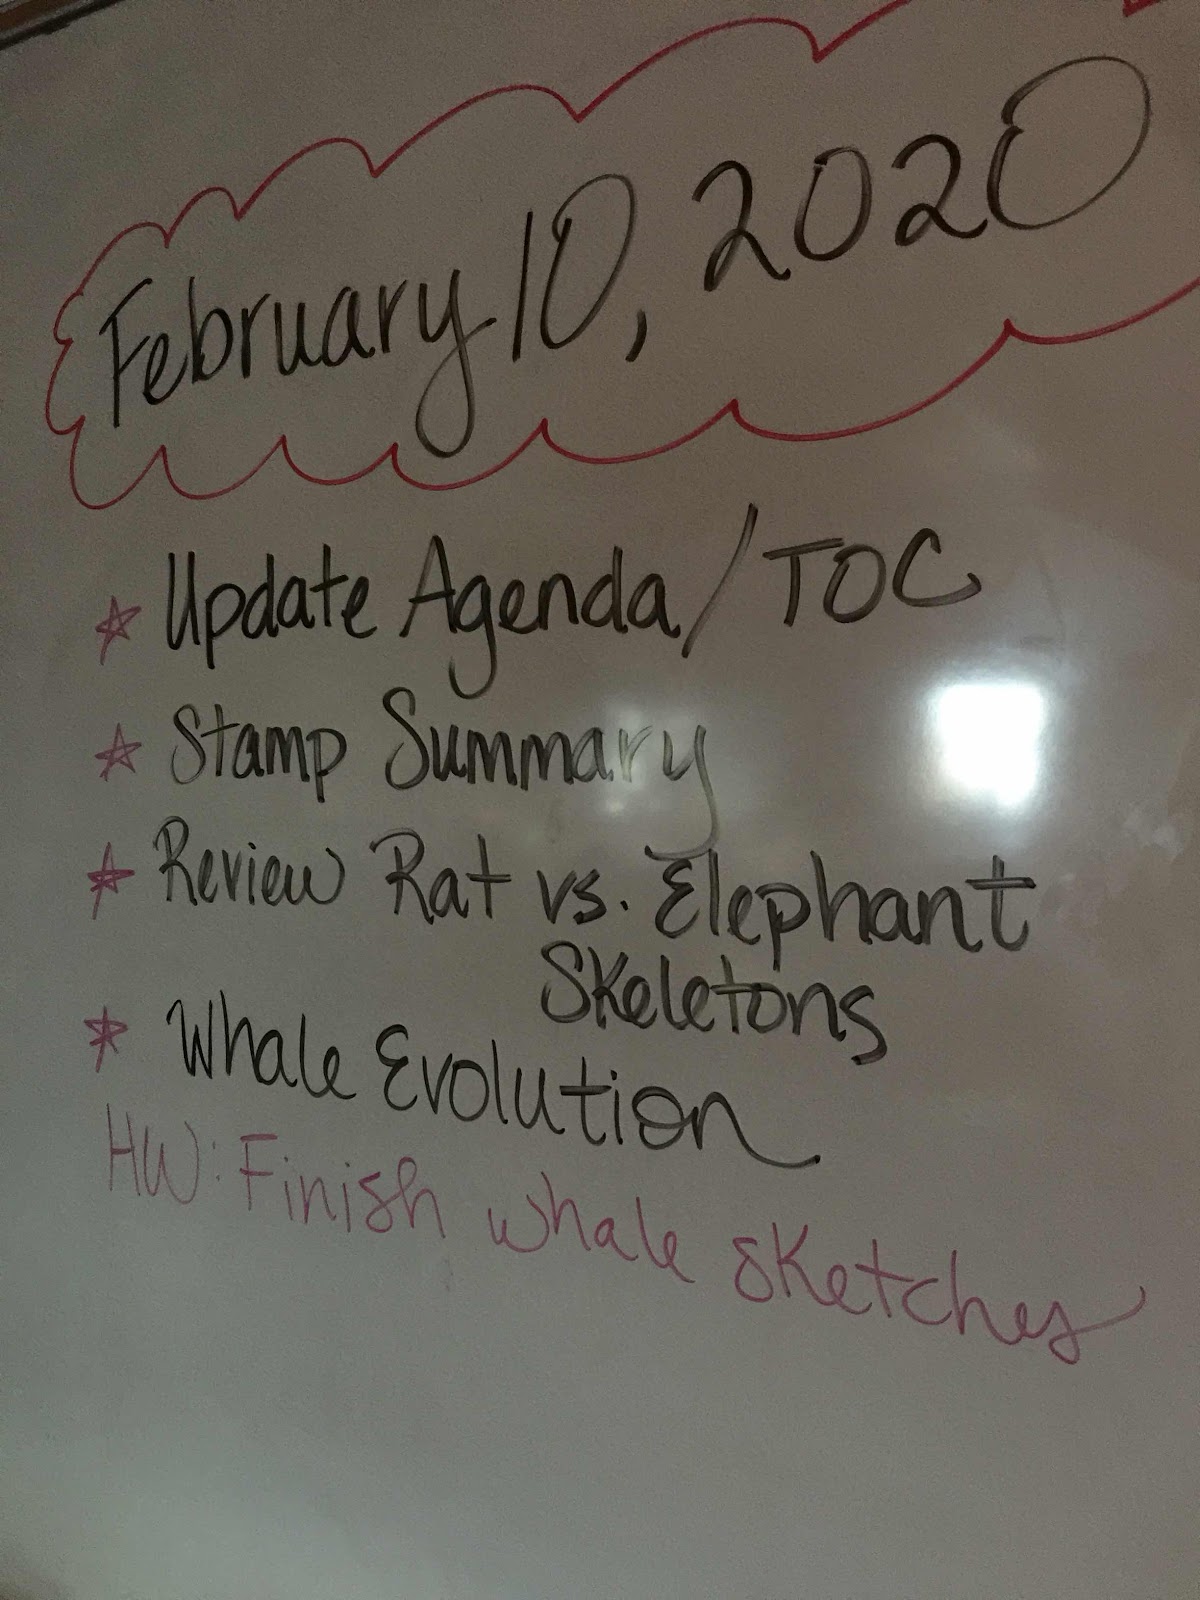 February 10, 2020
Update Agenda/TOC
Stamp Summary
Review Rat vs. Elephant
Skeletons
Whale Evolution
HW: Finish whale sketches